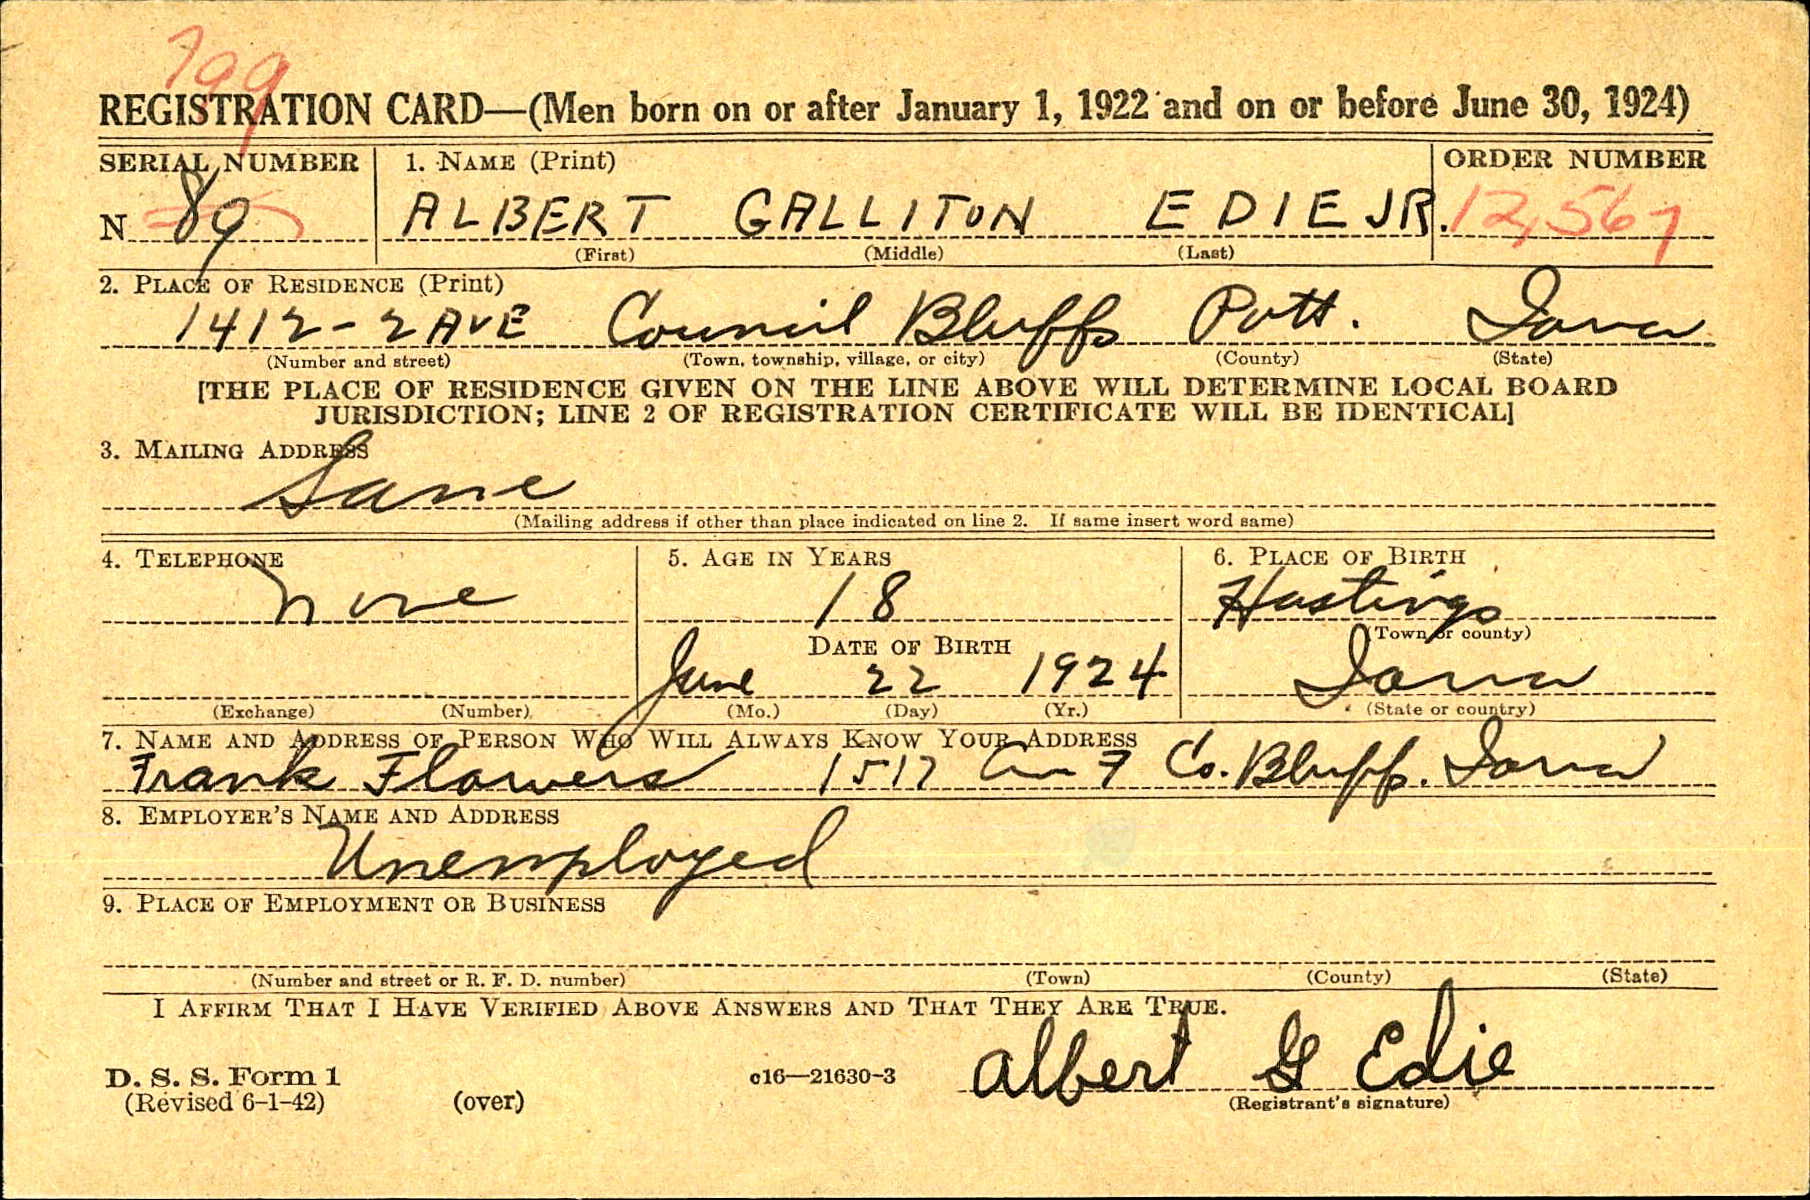 799
REGISTRATION CARD—(Men born on or after January 1, 1922 and on or before June 30, 1924)
SERIAL NUMBER 1. NAME (Print) ORDER NUMBER
N 89 ALBERT GALLITON EDIE JR. 12,567
(First) (Middle) (Last)
2. PLACE OF RESIDENCE (Print)
1412-2 AVE Council Bluffs Pott. Iowa
(Number and street) (Town, township, village, or city) (County) (State)
[THE PLACE OF RESIDENCE GIVEN ON THE LINE ABOVE WILL DETERMINE LOCAL BOARD
JURISDICTION; LINE 2 OF REGISTRATION CERTIFICATE WILL BE IDENTICAL]
3. MAILING ADDRESS
Same
(Mailing address if other than place indicated on line 2. If same insert word same)
4. TELEPHONE 5. AGE IN YEARS 6. PLACE OF BIRTH
None 18 Hastings
DATE OF BIRTH (Town or county)
June 22 1924 Iowa
(Exchange) (Number) (Mo.) (Day) (Yr.) (State or country)
7. NAME AND ADDRESS OF PERSON WHO WILL ALWAYS KNOW YOUR ADDRESS
Frank Flowers 1517 Ave F Co. Bluffs. Iowa
8. EMPLOYER'S NAME AND ADDRESS
Unemployed
9. PLACE OF EMPLOYMENT OR BUSINESS
(Number and street or R. F. D. number) (Town) (County) (State)
I AFFIRM THAT I HAVE VERIFIED ABOVE ANSWERS AND THAT THEY ARE TRUE.
Albert G Edie
D. S. S. Form 1 c16—21630-3
(Revised 6-1-42) (over) (Registrant's signature)